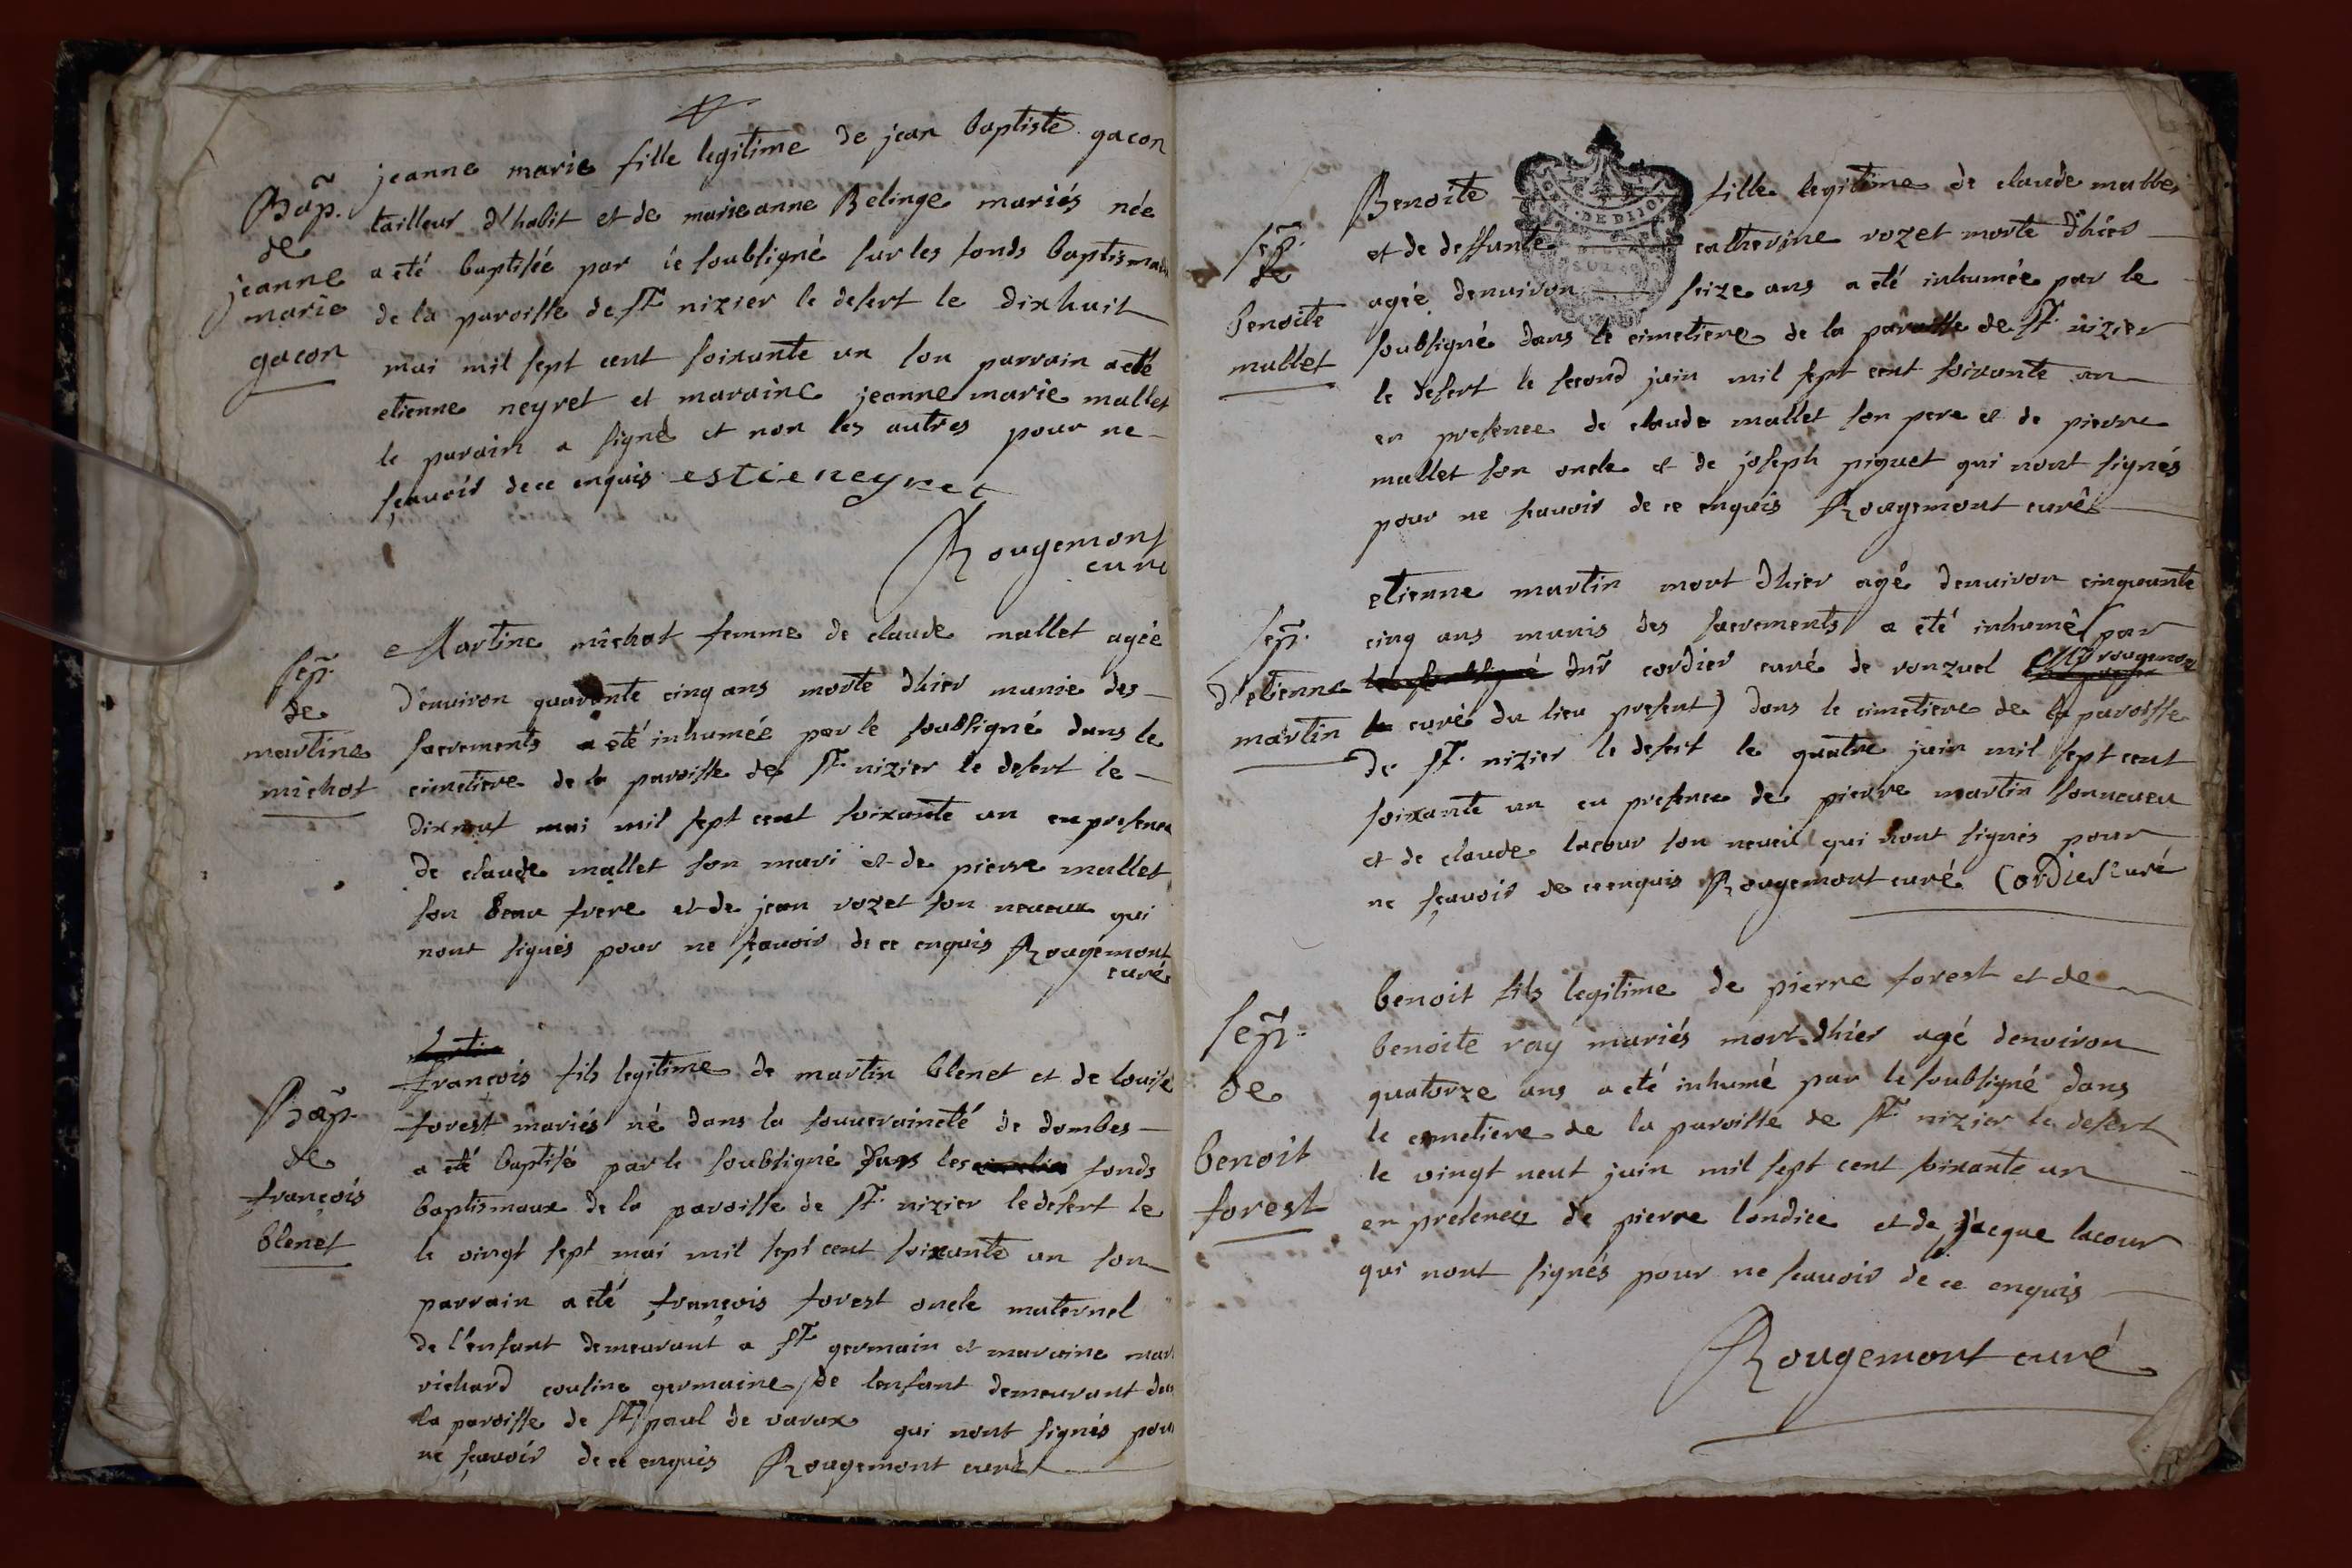 Bap.
de
jeanne
marie
gacon
jeanne marie fille legitime de jean baptiste gacon
tailleur d'habit et de marieanne Belinge mariés née
a eté baptisée par le soubsigné sur les fonds baptismaux
de la paroisse de st nizier le desert le dixhuit
mai mil sept cent soixante un son parrain a eté
etienne neyret et maraine jeanne marie mallet
le parain a signé et non les autres pour ne
sçauoir de ce enquis estieneyret
Rougemont
curé
sep.
de
martine
michot
Martine michot femme de claude mallet agée
d'enuiron quarante cinq ans morte dhier munie des
sacrements a eté inhumée par le soubsigné dans le
cimetiere de la paroisse de st nizier le desert le
dixneuf mai mil sept cent soixante un en presence
de claude mallet son mari et de pierre mallet
son beau frere et de jean rozet son neueux qui
nont signés pour ne sçauoir de ce enquis Rougemont
curé
Bap.
de
françois
blenet
françois fils legitime de martin blenet et de louise
forest mariés né dans la souueraineté de dombes
a eté baptisé par le soubsigné dans les fonds
baptismaux de la paroisse de st nizier le desert le
le vingt sept mai mil sept cent soixante un son
parrain a eté françois forest oncle maternel
de l'enfant demeurant a st germain et maraine
richard cousine germaine de lenfant demeurant
la paroisse de st paul de varax qui nont signés pour
ne sçauoir de ce enquis Rougemont curé
sep.
de
benoite
mallet
DE DIJON
Benoite fille legitime de claude mallet
et de deffunte catherine rozet morte dhier
agée denuiron seize ans a eté inhumée par le
soubsigné dans le cimetiere de la paroisse de st nizier
le desert le second juin mil sept cent soixante un
en presence de claude mallet son pere et de pierre
mallet son oncle et de joseph piquet qui nont signés
pour ne sçauoir de ce enquis Rougemont curé
sep.
d'etienne
martin
etienne martin mort dhier agé denuiron cinquante
cinq ans munis des sacrements a eté inhumé par
cordier curé de ronzuel rougemont
curé du lieu present) dans le cimetiere de la paroisse
de st nizier le desert le quatre juin mil sept cent
soixante un en presence de pierre martin son neueu
et de claude lacour son neueu qui nont signés pour
ne sçauoir de ce enquis Rougemont curé Cordier curé
sep.
de
benoit
forest
benoit fils legitime de pierre forest et de
benoite ray mariés mort dhier agé denuiron
quatorze ans a eté inhumé par le soubsigné dans
le cimetiere de la paroisse de st nizier le desert
le vingt neuf juin mil sept cent soixante un
en presence de pierre et de jacque lacour
qui nont signés pour ne sçauoir de ce enquis
Rougemont curé